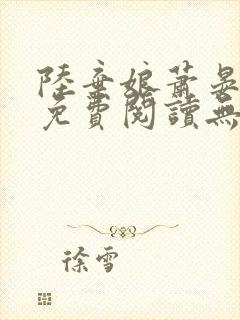 陸棄娘蕭晏
免費閱讀無
徐雪